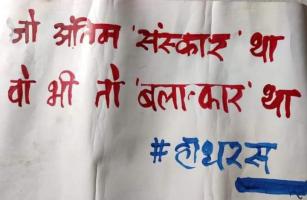 जो अंतिम 'संस्कार' था
वो भी तो 'बलात्कार' था
#हाथरस